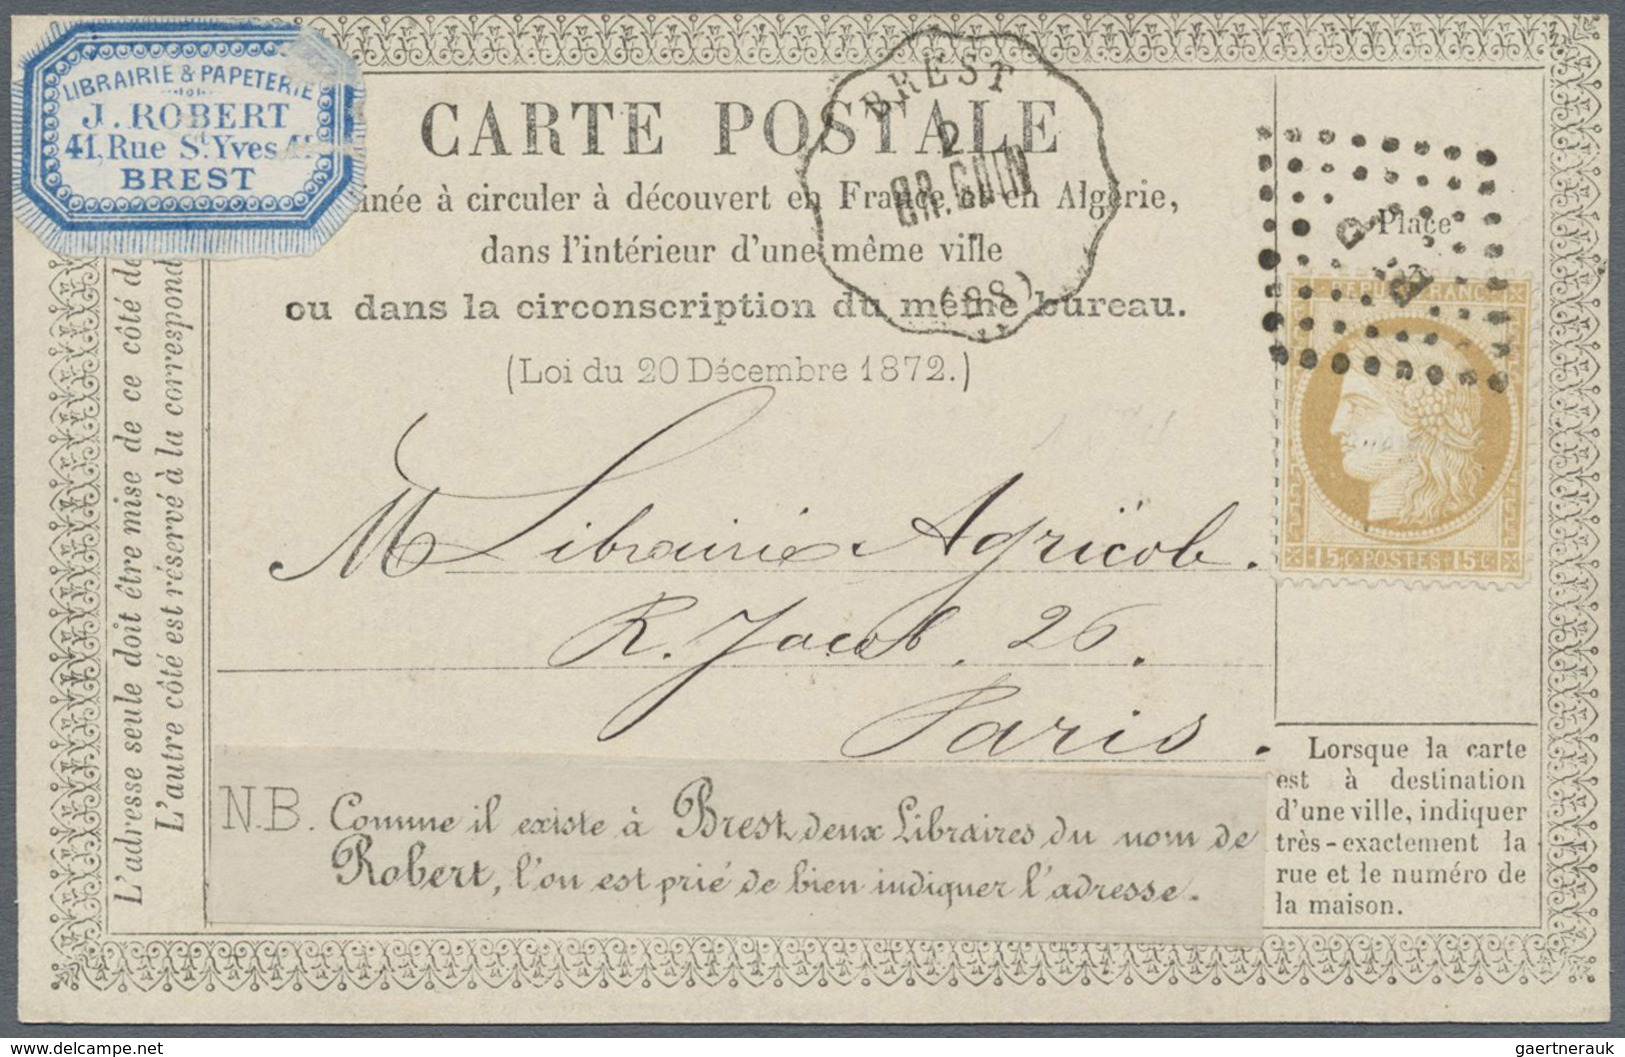 LIBRAIRIE & PAPETERIE
J. ROBERT
41, Rue St. Yves 41
BREST
CARTE POSTALE
inée à circuler à découvert en France et en Algérie,
dans l'intérieur d'une même ville
ou dans la circonscription du même bureau.
(Loi du 20 Décembre 1872.)
BREST
2
GR.GUIN
(88)
Place
REPUB FRANC
15 C POSTES 15 C
L'adresse seule doit être mise de ce côté de
L'autre côté est réservé à la correspond
M Librairie Agricole.
R. Jacob. 26.
Paris.
N.B. Comme il existe à Brest, deux Libraires du nom de
Robert, l'on est prié de bien indiquer l'adresse.
Lorsque la carte
est à destination
d'une ville, indiquer
très-exactement la
rue et le numéro de
la maison.
delcampe.net
gaertnerauk